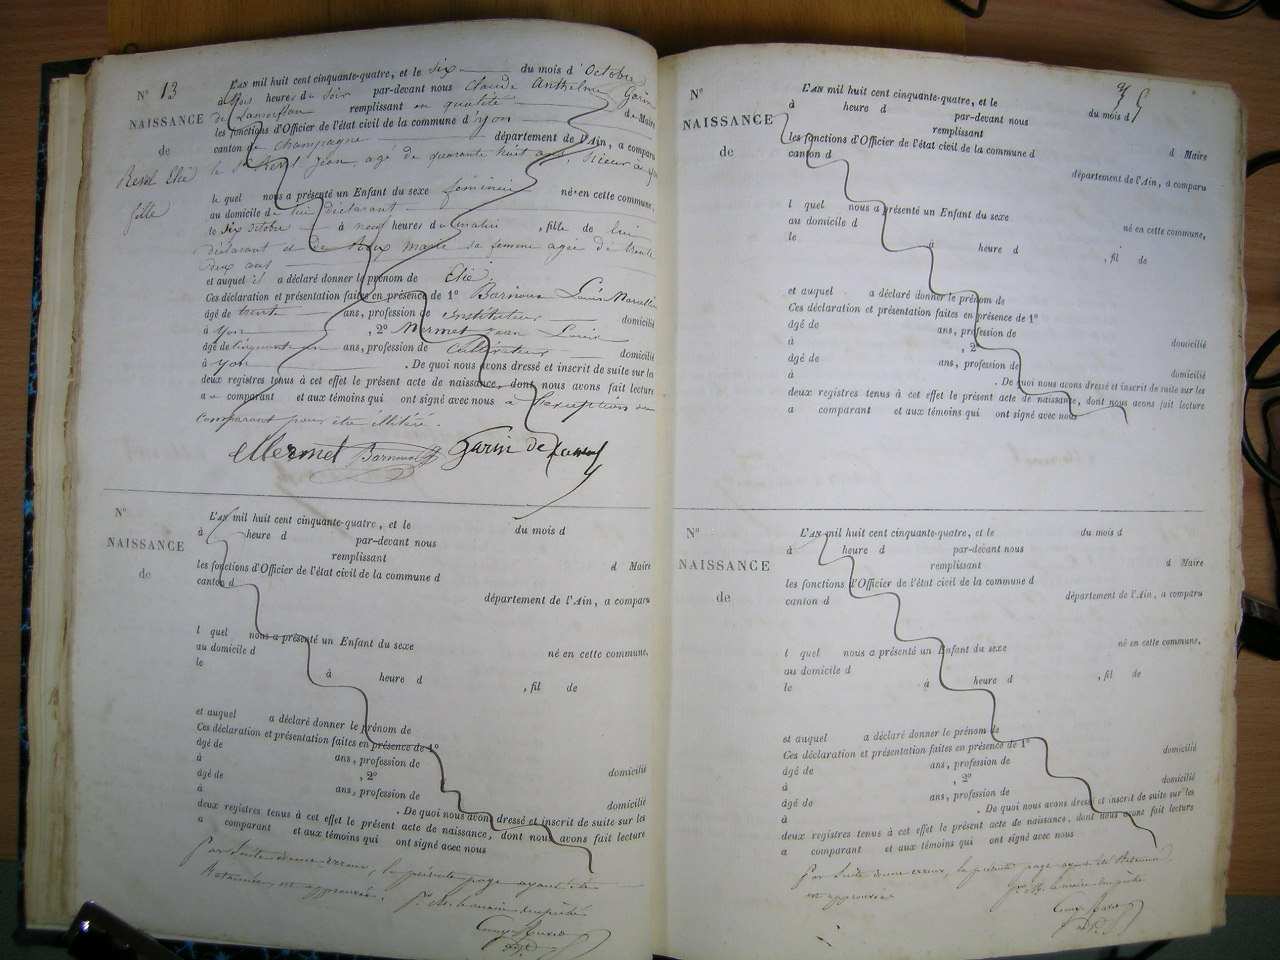 N° 13
NAISSANCE
de
Revel Elié
fille
L'AN mil huit cent cinquante-quatre, et le six du mois d'Octobre
à trois heures du soir par-devant nous Claude Anthelme Garin
de Lamorflan remplissant en qualité de Maire
les fonctions d'Officier de l'état civil de la commune d'yon
canton de champagne département de l'Ain, a comparu
le Sr Revel Jean, agé de quarante huit ans
le quel nous a présenté un Enfant du sexe féminin né en cette commune,
au domicile de lui déclarant
le six octobre à neuf heures du matin, fille de lui
déclarant et de Roux marie sa femme agée de trente
deux ans
et auquel il a déclaré donner le prénom de Elié.
Ces déclaration et présentation faites en présence de 1° Barnoux Louis Marcellin
âgé de trente ans, profession de instituteur domicilié
à yon, 2° Mermet jean Louis
âgé de cinquante un ans, profession de cultivateur domicilié
à yon. De quoi nous avons dressé et inscrit de suite sur les
deux registres tenus à cet effet le présent acte de naissance, dont nous avons fait lecture
au comparant et aux témoins qui ont signé avec nous à l'exception du
comparant pour être illitéré.
Mermet Barnoux Garin de Lamorf
N°
NAISSANCE
de
L'AN mil huit cent cinquante-quatre, et le du mois d
à heure d par-devant nous
remplissant d Maire
les fonctions d'Officier de l'état civil de la commune d
canton d département de l'Ain, a comparu
l quel nous a présenté un Enfant du sexe né en cette commune,
au domicile d
le à heure d, fil de
et auquel a déclaré donner le prénom de
Ces déclaration et présentation faites en présence de 1°
âgé de ans, profession de domicilié
à, 2°
âgé de ans, profession de domicilié
à. De quoi nous avons dressé et inscrit de suite sur les
deux registres tenus à cet effet le présent acte de naissance, dont nous avons fait lecture
a comparant et aux témoins qui ont signé avec nous
par suite d'une erreur, la présente page ayant été
bâtonnée, est approuvée.
N°
NAISSANCE
de
L'AN mil huit cent cinquante-quatre, et le du mois d
à heure d par-devant nous
remplissant d Maire
les fonctions d'Officier de l'état civil de la commune d
canton d département de l'Ain, a comparu
l quel nous a présenté un Enfant du sexe né en cette commune,
au domicile d
le à heure d, fil de
et auquel a déclaré donner le prénom de
Ces déclaration et présentation faites en présence de 1°
âgé de ans, profession de domicilié
à, 2°
âgé de ans, profession de domicilié
à. De quoi nous avons dressé et inscrit de suite sur les
deux registres tenus à cet effet le présent acte de naissance, dont nous avons fait lecture
a comparant et aux témoins qui ont signé avec nous
N°
NAISSANCE
de
L'AN mil huit cent cinquante-quatre, et le du mois d
à heure d par-devant nous
remplissant d Maire
les fonctions d'Officier de l'état civil de la commune d
canton d département de l'Ain, a comparu
l quel nous a présenté un Enfant du sexe né en cette commune,
au domicile d
le à heure d, fil de
et auquel a déclaré donner le prénom de
Ces déclaration et présentation faites en présence de 1°
âgé de ans, profession de domicilié
à, 2°
âgé de ans, profession de domicilié
à. De quoi nous avons dressé et inscrit de suite sur les
deux registres tenus à cet effet le présent acte de naissance, dont nous avons fait lecture
a comparant et aux témoins qui ont signé avec nous
par suite d'une erreur, la présente page ayant été bâtonnée
est approuvée